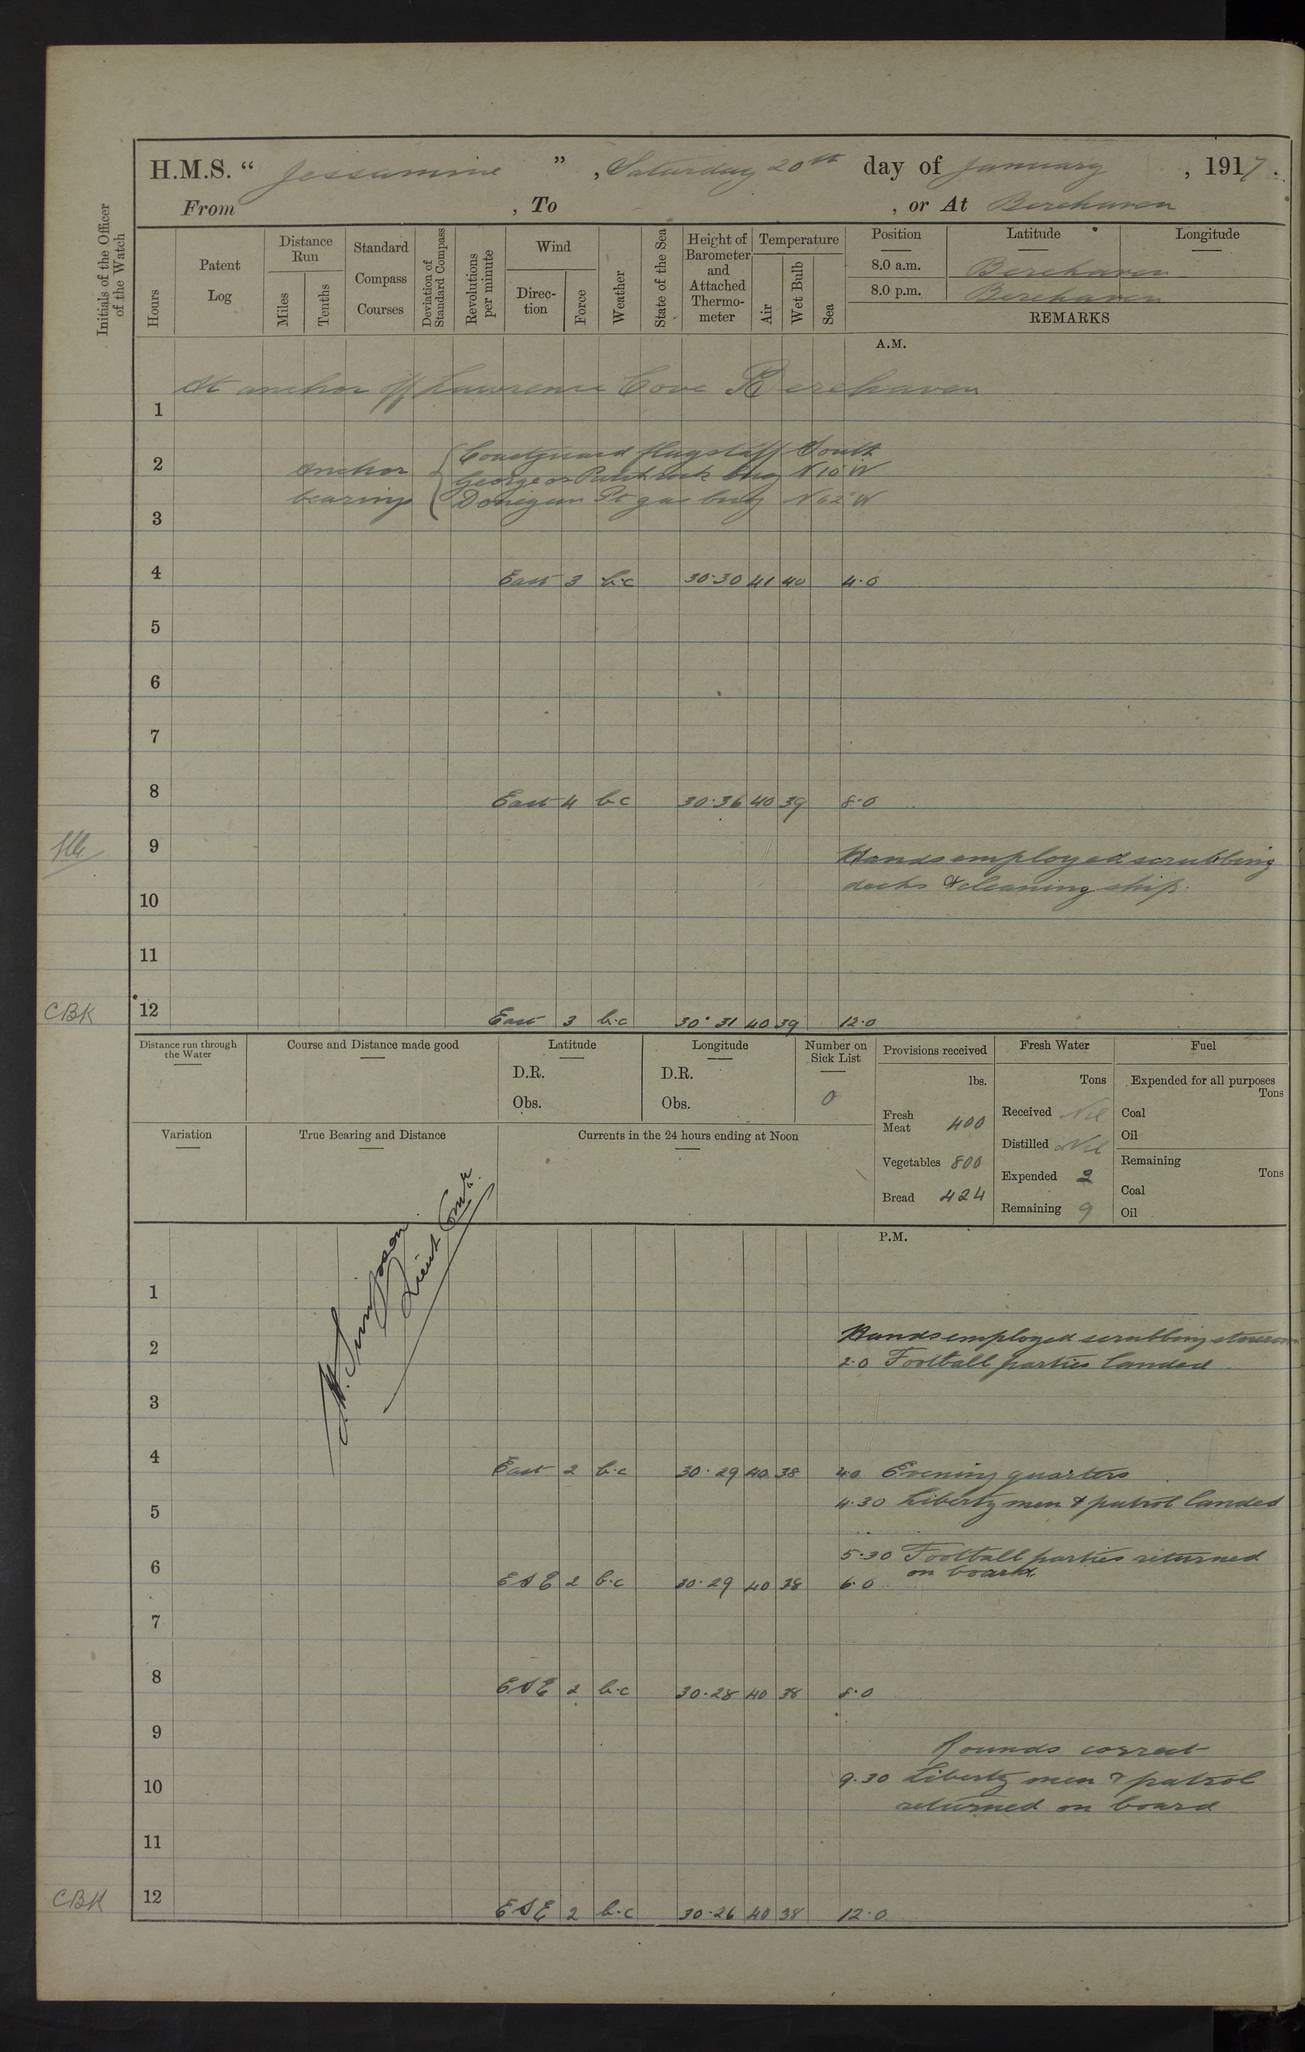 H.M.S. “ Jessamine ” , Saturday 20th day of January , 1917 .
From , To , or At Berehaven
Initials of the Officer of the Watch
Hours
Patent Log
Distance Run
Miles
Tenths
Standard Compass Courses
Deviation of Standard Compass
Revolutions per minute
Wind
Direc-tion
Force
Weather
State of the Sea
Height of Barometer and Attached Thermo-meter
Temperature
Air
Wet Bulb
Sea
Position Latitude Longitude
8.0 a.m. Berehaven
8.0 p.m. Berehaven
REMARKS
A.M.
At anchor off Lawrence Cove Berehaven
1
2 Coastguard flagstaff South
Anchor George or Patch rock buoy N 10 W
bearings Donegan Pt gas buoy N 62 W
3
4 East 3 b.c 30.30 41 40 4.0
5
6
7
8 East 4 b.c 30.36 40 39 8.0
9 Hands employed scrubbing
decks & cleaning ship.
10
11
CBK 12 East 3 b.c 30.31 40 39 12.0
Distance run through the Water
Course and Distance made good
Latitude
D.R.
Obs.
Longitude
D.R.
Obs.
Number on Sick List
0
Provisions received
lbs.
Fresh Meat 400
Vegetables 800
Bread 424
Fresh Water
Tons
Received Nil
Distilled Nil
Expended 2
Remaining 9
Fuel
Expended for all purposes
Tons
Coal
Oil
Remaining
Tons
Coal
Oil
Variation
True Bearing and Distance
Currents in the 24 hours ending at Noon
Simpson
Lieut Comdr.
P.M.
1
Hands employed scrubbing
2
2.0 Football parties landed
3
4 East 2 b.c 30.29 40 38 4.0 Evening quarters
4.30 Liberty men & patrol landed
5
5.30 Football parties returned
on board.
6 ESE 2 b.c 30.29 40 38 6.0
7
8 ESE 2 b.c 30.28 40 38 8.0
9
Rounds correct
10 9.30 Liberty men & patrol
returned on board
11
CBK 12 ESE 2 b.c 30.26 40 38 12.0